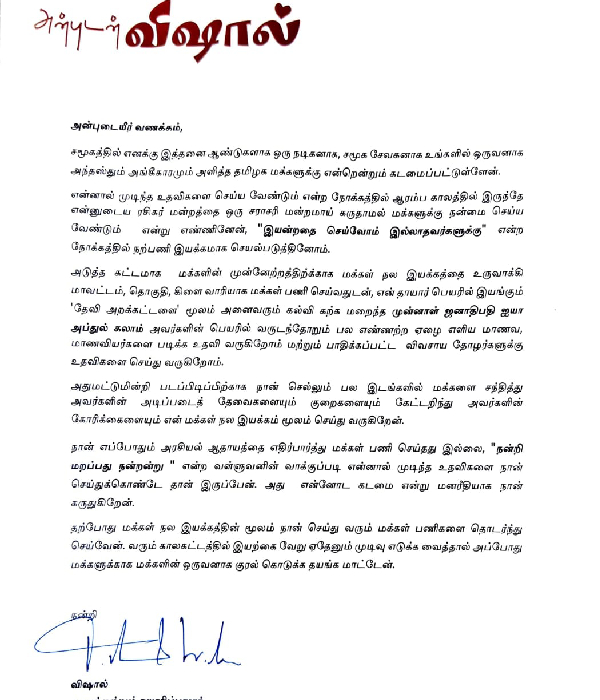 அன்புடன் விஷால்
அன்புடையீர் வணக்கம்,
சமூகத்தில் எனக்கு இத்தனை ஆண்டுகளாக ஒரு நடிகனாக, சமூக சேவகனாக உங்களில் ஒருவனாக
அந்தஸ்தும் அங்கீகாரமும் அளித்த தமிழக மக்களுக்கு என்றென்றும் கடமைப்பட்டுள்ளேன்.
என்னால் முடிந்த உதவிகளை செய்ய வேண்டும் என்ற நோக்கத்தில் ஆரம்ப காலத்தில் இருந்தே
என்னுடைய ரசிகர் மன்றத்தை ஒரு சராசரி மன்றமாய் கருதாமல் மக்களுக்கு நன்மை செய்ய
வேண்டும் என்று எண்ணினேன், "இயன்றதை செய்வோம் இல்லாதவர்களுக்கு" என்ற
நோக்கத்தில் நற்பணி இயக்கமாக செயல்படுத்தினோம்.
அடுத்த கட்டமாக மக்களின் முன்னேற்றத்திற்க்காக மக்கள் நல இயக்கத்தை உருவாக்கி
மாவட்டம், தொகுதி, கிளை வாரியாக மக்கள் பணி செய்வதுடன், என் தாயார் பெயரில் இயங்கும்
"தேவி அறக்கட்டளை" மூலம் அனைவரும் கல்வி கற்க மறைந்த முன்னாள் ஜனாதிபதி ஐயா
அப்துல் கலாம் அவர்களின் பெயரில் வருடந்தோறும் பல எண்ணற்ற ஏழை எளிய மாணவ,
மாணவியர்களை படிக்க உதவி வருகிறோம் மற்றும் பாதிக்கப்பட்ட விவசாய தோழர்களுக்கு
உதவிகளை செய்து வருகிறோம்.
அதுமட்டுமின்றி படப்பிடிப்பிற்காக நான் செல்லும் பல இடங்களில் மக்களை சந்தித்து
அவர்களின் அடிப்படைத் தேவைகளையும் குறைகளையும் கேட்டறிந்து அவர்களின்
கோரிக்கைளையும் என் மக்கள் நல இயக்கம் மூலம் செய்து வருகிறேன்.
நான் எப்போதும் அரசியல் ஆதாயத்தை எதிர்பார்த்து மக்கள் பணி செய்தது இல்லை, "நன்றி
மறப்பது நன்றன்று " என்ற வள்ளுவனின் வாக்குப்படி என்னால் முடிந்த உதவிகளை நான்
செய்துக்கொண்டே தான் இருப்பேன். அது என்னோட கடமை என்று மனரீதியாக நான்
கருதுகிறேன்.
தற்போது மக்கள் நல இயக்கத்தின் மூலம் நான் செய்து வரும் மக்கள் பணிகளை தொடர்ந்து
செய்வேன். வரும் காலகட்டத்தில் இயற்கை வேறு ஏதேனும் முடிவு எடுக்க வைத்தால் அப்போது
மக்களுக்காக மக்களின் ஒருவனாக குரல் கொடுக்க தயங்க மாட்டேன்.
நன்றி
விஷால்